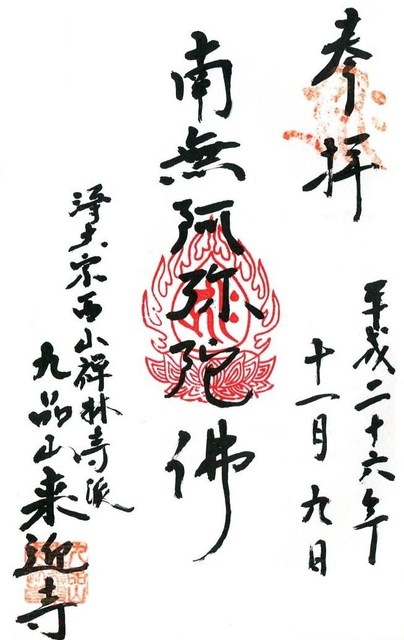 奉拝
平成二十六年
十一月九日
南無阿弥陀佛
浄土宗西山禅林寺派
九品山来迎寺